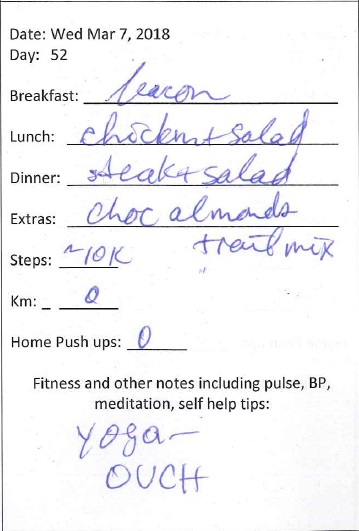 Date: Wed Mar 7, 2018
Day: 52
Breakfast: bacon
Lunch: chicken + salad
Dinner: steak + salad
Extras: choc almonds
trail mix
Steps: ~10K
Km: 0
Home Push ups: 0
Fitness and other notes including pulse, BP,
meditation, self help tips:
yoga -
OUCH